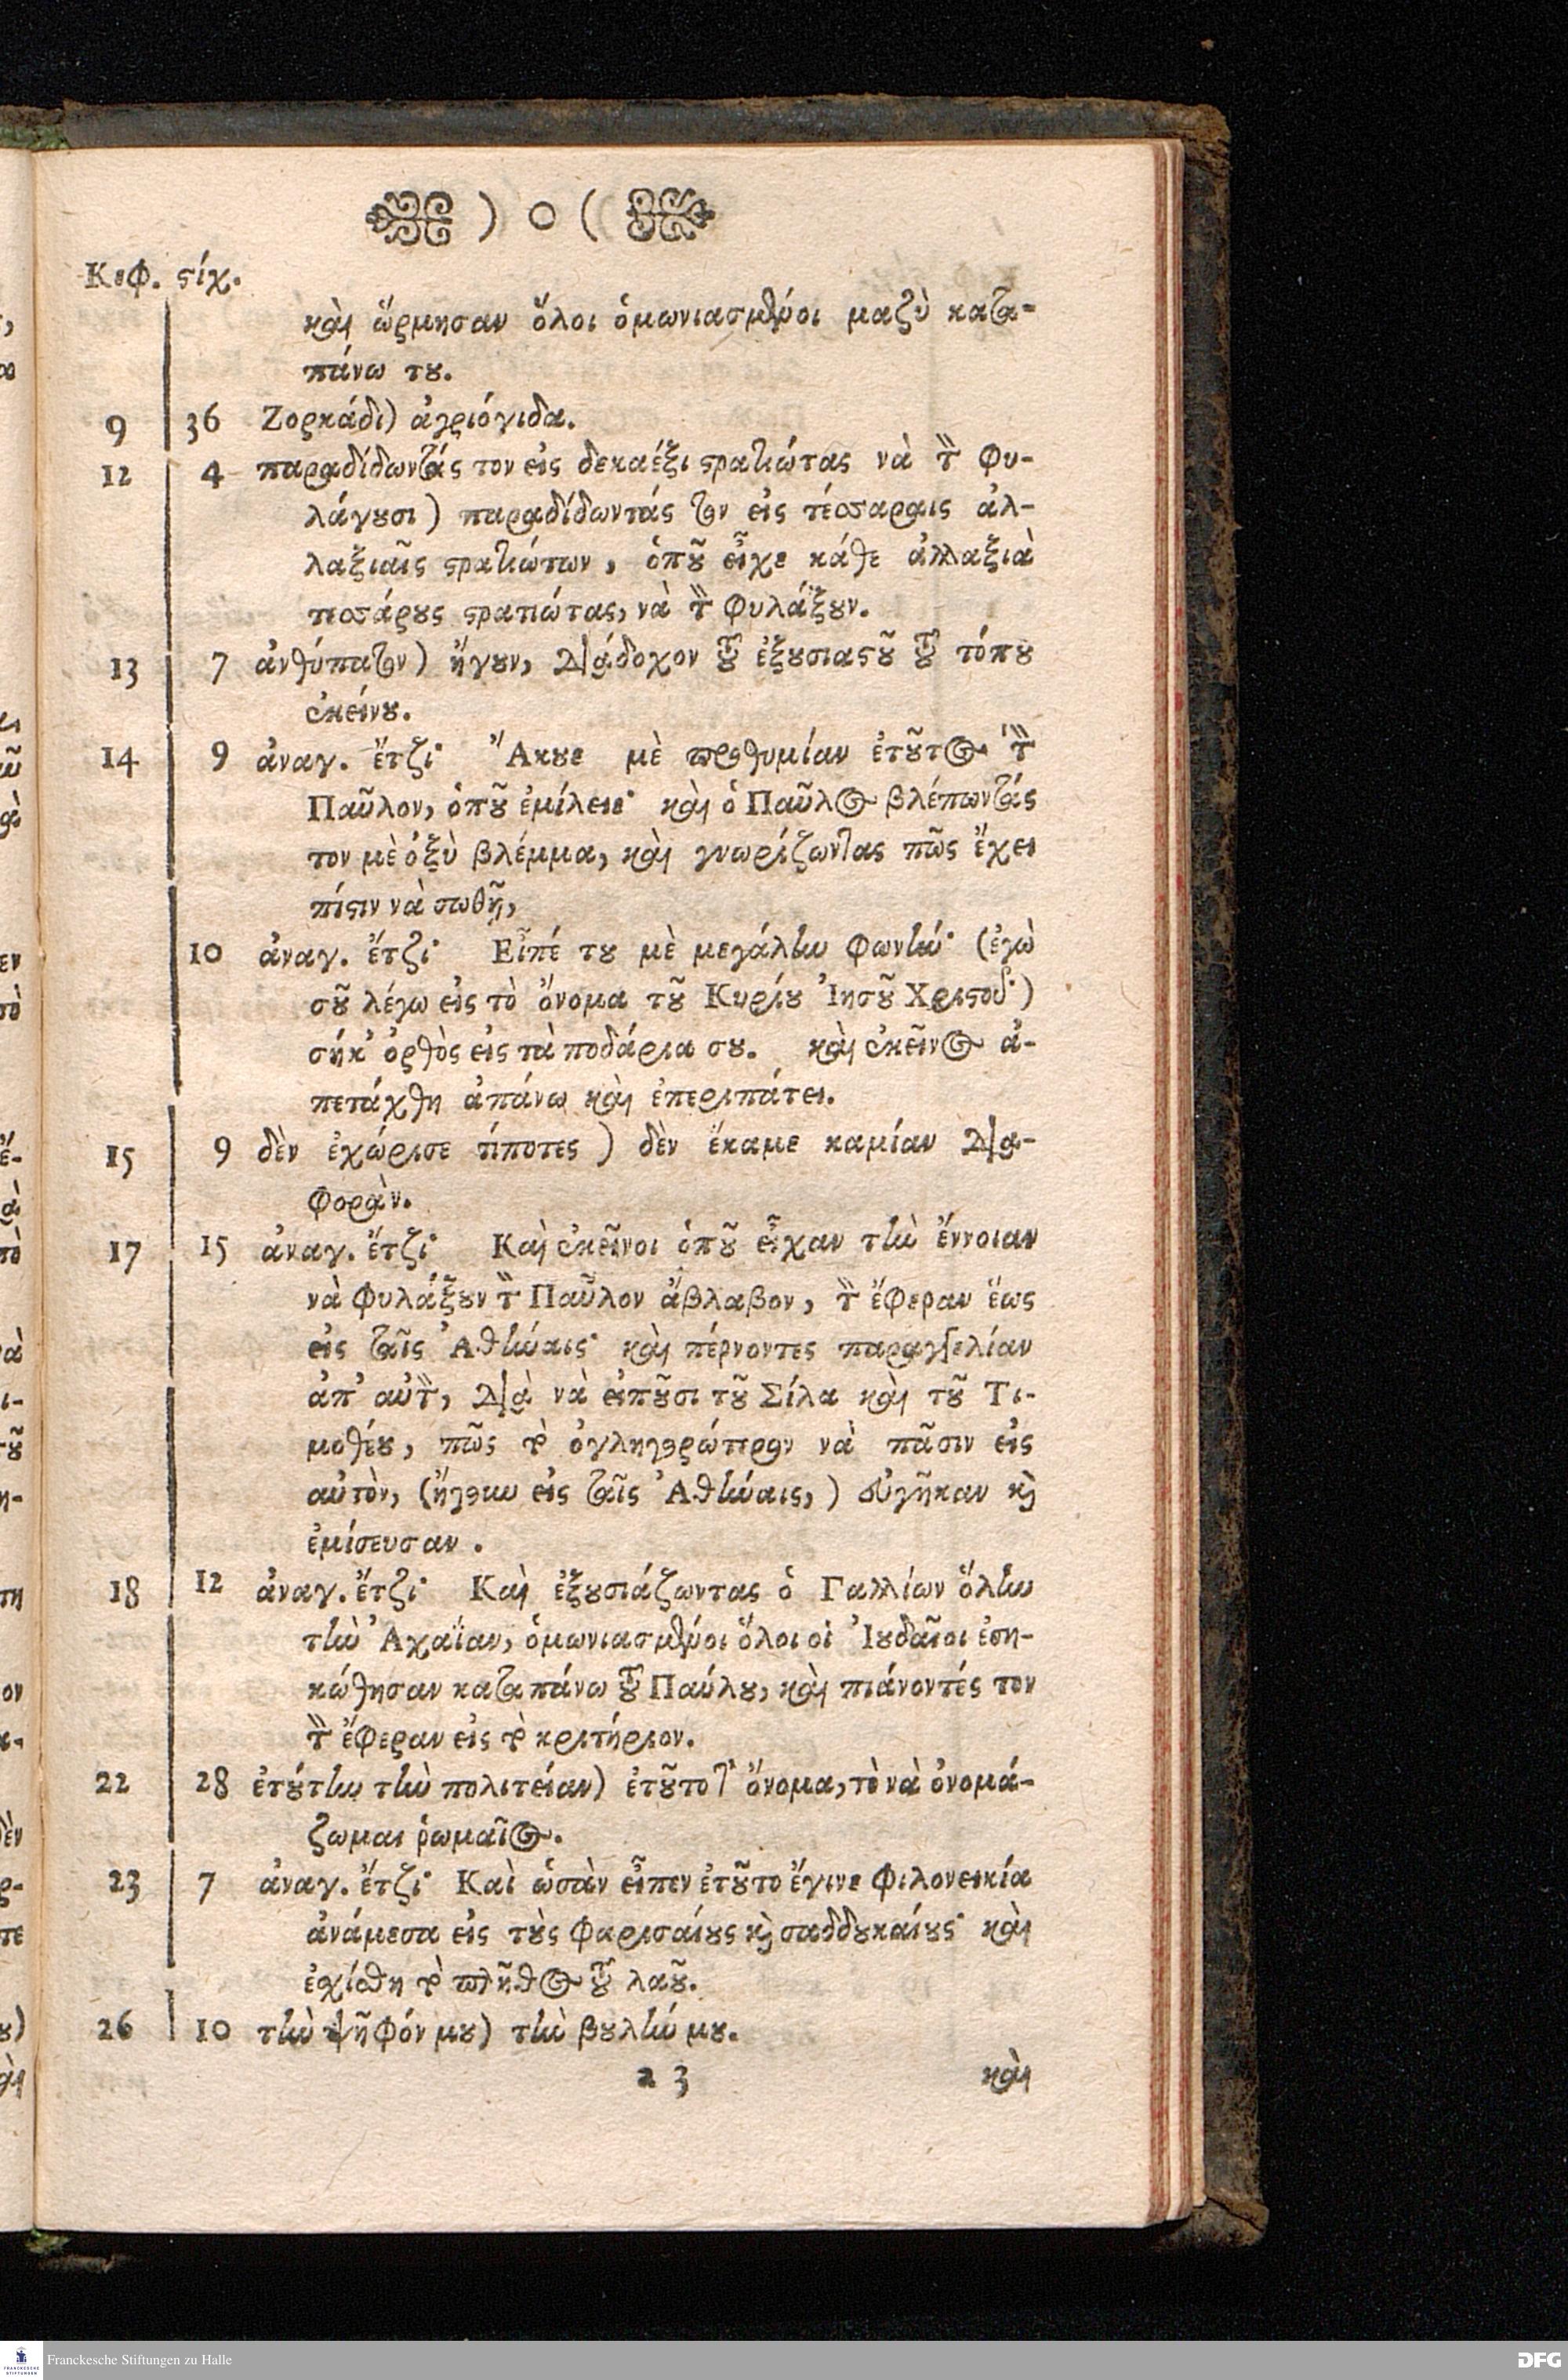 ) o (
Κεφ. ϛίχ.
καὶ ὥρμησαν ὅλοι ὁμωνιασμένοι μαζὺ κατα-
πάνω του.
9 36 Ζορκάδι) ἀγριόγιδα.
12 4 παραδίδωντάς τον εἰς δεκαέξι ϛρατιώτας νὰ τὸν φυ-
λάγουσι) παραδίδωντάς τον εἰς τέσσαραις ἀλ-
λαξιαῖς ϛρατιώτων, ὁποῦ εἶχε κάθε ἀλλαξιὰ
τεσσάρους ϛρατιώτας, νὰ τὸν φυλάξουν.
13 7 ἀνθύπατον) ἤγουν, διάδοχον τοῦ ἐξουσιαϛοῦ τοῦ τόπου
ἐκείνου.
14 9 ἀναγ. ἔτζι· Ἄκουε μὲ προθυμίαν ἐτοῦτος τὸν
Παῦλον, ὁποῦ ἐμίλειε· καὶ ὁ Παῦλος βλέπωντάς
τον μὲ ὀξὺ βλέμμα, καὶ γνωρίζωντας πῶς ἔχει
πίϛιν νὰ σωθῇ,
10 ἀναγ. ἔτζι· Εἶπέ του μὲ μεγάλην φωνήν· (ἐγὼ
σοῦ λέγω εἰς τὸ ὄνομα τοῦ Κυρίου Ἰησοῦ Χριϛοῦ·)
σήκ' ὀρθὸς εἰς τὰ ποδάρια σου. καὶ ἐκεῖνος ἀ-
πετάχθη ἀπάνω καὶ ἐπεριπάτει.
15 9 δὲν ἐχώρισε τίποτες) δὲν ἔκαμε καμίαν δια-
φοράν.
17 15 ἀναγ. ἔτζι· Καὶ ἐκεῖνοι ὁποῦ εἶχαν τὴν ἔννοιαν
νὰ φυλάξουν τὸν Παῦλον ἄβλαβον, τὸν ἔφεραν ἕως
εἰς ταῖς Ἀθήναις· καὶ πέρνοντες παραγγελίαν
ἀπ' αὐτὸν, διὰ νὰ εἰποῦσι τοῦ Σίλα καὶ τοῦ Τι-
μοθέου, πῶς τὸ ὀγληγορώτερον νὰ πᾶσιν εἰς
αὐτὸν, (ἤγουν εἰς ταῖς Ἀθήναις,) εὐγῆκαν καὶ
ἐμίσευσαν.
18 12 ἀναγ. ἔτζι· Καὶ ἐξουσιάζωντας ὁ Γαλλίων ὅλην
τὴν Ἀχαΐαν, ὁμωνιασμένοι ὅλοι οἱ Ἰουδαῖοι ἐση-
κώθησαν καταπάνω τοῦ Παύλου, καὶ πιάνοντές τον
τὸν ἔφεραν εἰς τὸ κριτήριον.
22 28 ἐτούτην τὴν πολιτείαν) ἐτοῦτο τὸ ὄνομα, τὸ νὰ ὀνομά-
ζωμαι ῥωμαῖος.
23 7 ἀναγ. ἔτζι· Καὶ ὡσὰν εἶπεν ἐτοῦτο ἔγινε φιλονεικία
ἀνάμεσα εἰς τοὺς φαρισαίους καὶ σαδδουκαίους· καὶ
ἐσχίσθη τὸ πλῆθος τοῦ λαοῦ.
26 10 τὴν ψῆφόν μου) τὴν βουλήν μου.
a 3 καὶ
Franckesche Stiftungen zu Halle
DFG